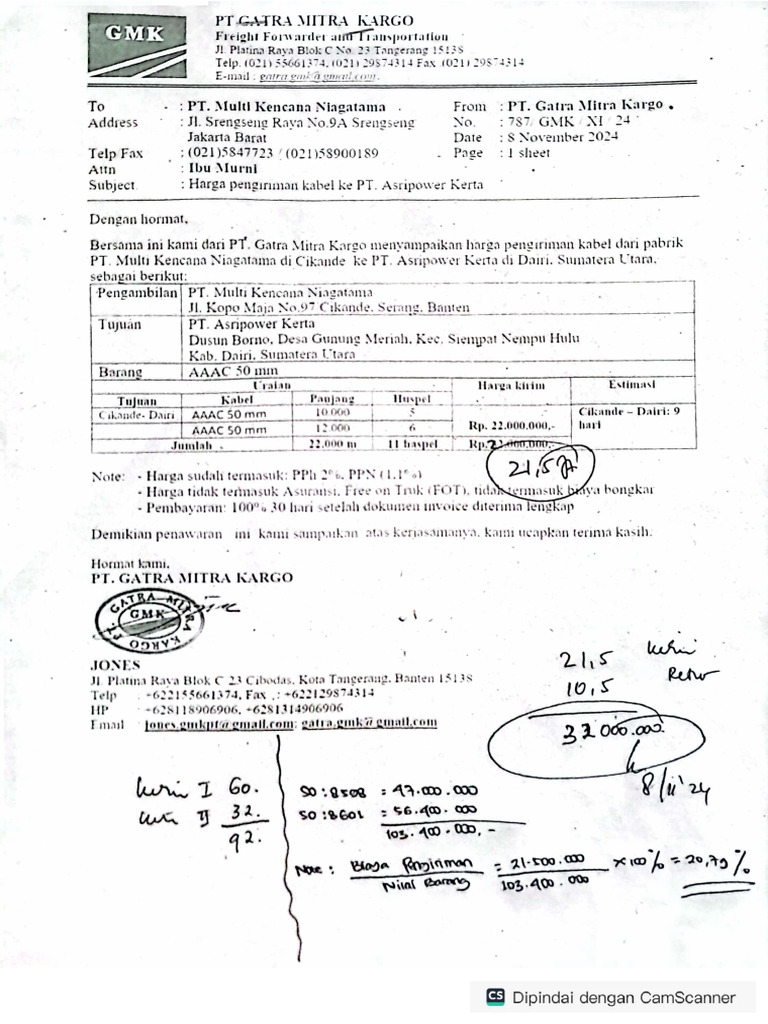 GMK
PT GATRA MITRA KARGO
Freight Forwarder and Transportation
Jl. Platina Raya Blok C No. 23 Tangerang 15138
Telp. (021) 55661374, (021) 29874314 Fax (021) 29874314
E-mail : gatra.gmk@gmail.com.
To : PT. Multi Kencana Niagatama
From : PT. Gatra Mitra Kargo
Address : Jl. Srengseng Raya No.9A Srengseng
No. : 787/ GMK / XI / 24
Jakarta Barat
Date : 8 November 2024
Telp Fax : (021)5847723 / (021)58900189
Page : 1 sheet
Attn : Ibu Murni
Subject : Harga pengiriman kabel ke PT. Asripower Kerta
Dengan hormat,
Bersama ini kami dari PT. Gatra Mitra Kargo menyampaikan harga pengiriman kabel dari pabrik
PT. Multi Kencana Niagatama di Cikande ke PT. Asripower Kerta di Dairi, Sumatera Utara,
sebagai berikut:
Pengambilan PT. Multi Kencana Niagatama
Jl. Kopo Maja No.97 Cikande, Serang, Banten
Tujuan PT. Asripower Kerta
Dusun Borno, Desa Gunung Meriah, Kec. Siempat Nempu Hulu
Kab. Dairi, Sumatera Utara
Barang AAAC 50 mm
Uraian Harga kirim Estimasi
Tujuan Kabel Panjang Huspel
Cikande- Dairi AAAC 50 mm 10.000 5 Cikande – Dairi: 9
AAAC 50 mm 12.000 6 Rp. 22.000.000,- hari
Jumlah 22.000 m 11 haspel Rp.22.000.000,-
21,5 Jt
Note: - Harga sudah termasuk: PPh 2%, PPN (1,1%)
- Harga tidak termasuk Asuransi, Free on Truk (FOT), tidak termasuk biaya bongkar
- Pembayaran: 100% 30 hari setelah dokumen invoice diterima lengkap
Demikian penawaran ini kami sampaikan atas kerjasamanya, kami ucapkan terima kasih.
Hormat kami,
PT. GATRA MITRA KARGO
PT. GATRA MITRA KARGO
GMK
JONES
Jl. Platina Raya Blok C 23 Cibodas, Kota Tangerang, Banten 15138
Telp : +622155661374, Fax : +622129874314
HP : +628118906906, +6281314906906
Email : jones.gmkpt@gmail.com; gatra.gmk@gmail.com
21,5 kirim
10,5 Retur
32 000.000
8/11'24
kirim I 60.
kirim II 32.
92.
SO : 8508 = 47.000.000
SO : 8601 = 56.400.000
103.400.000,-
Note : Biaya Pengiriman = 21.500.000 × 100% = 20,79%
Nilai Barang 103.400.000
CS Dipindai dengan CamScanner